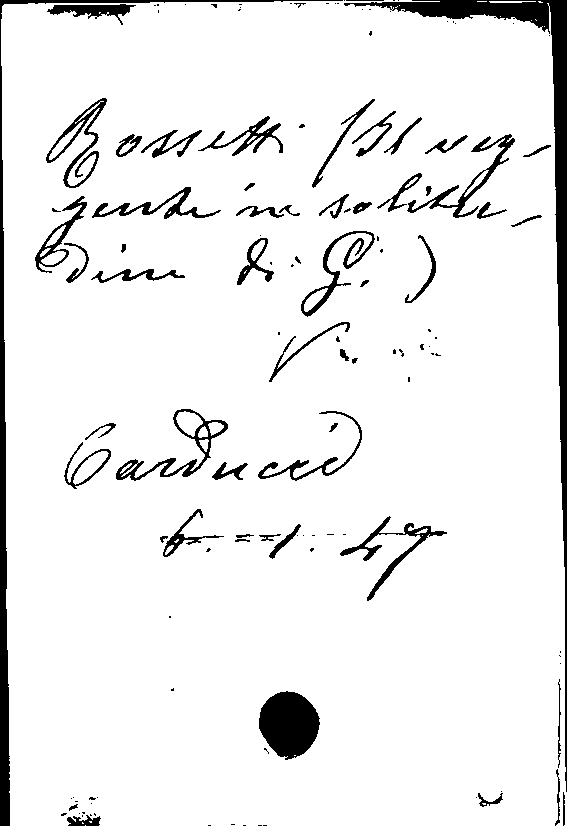 Rossetti (Il veg-
gente in solitu-
dine di G.)
V.
Carducci
6. = 1. 47